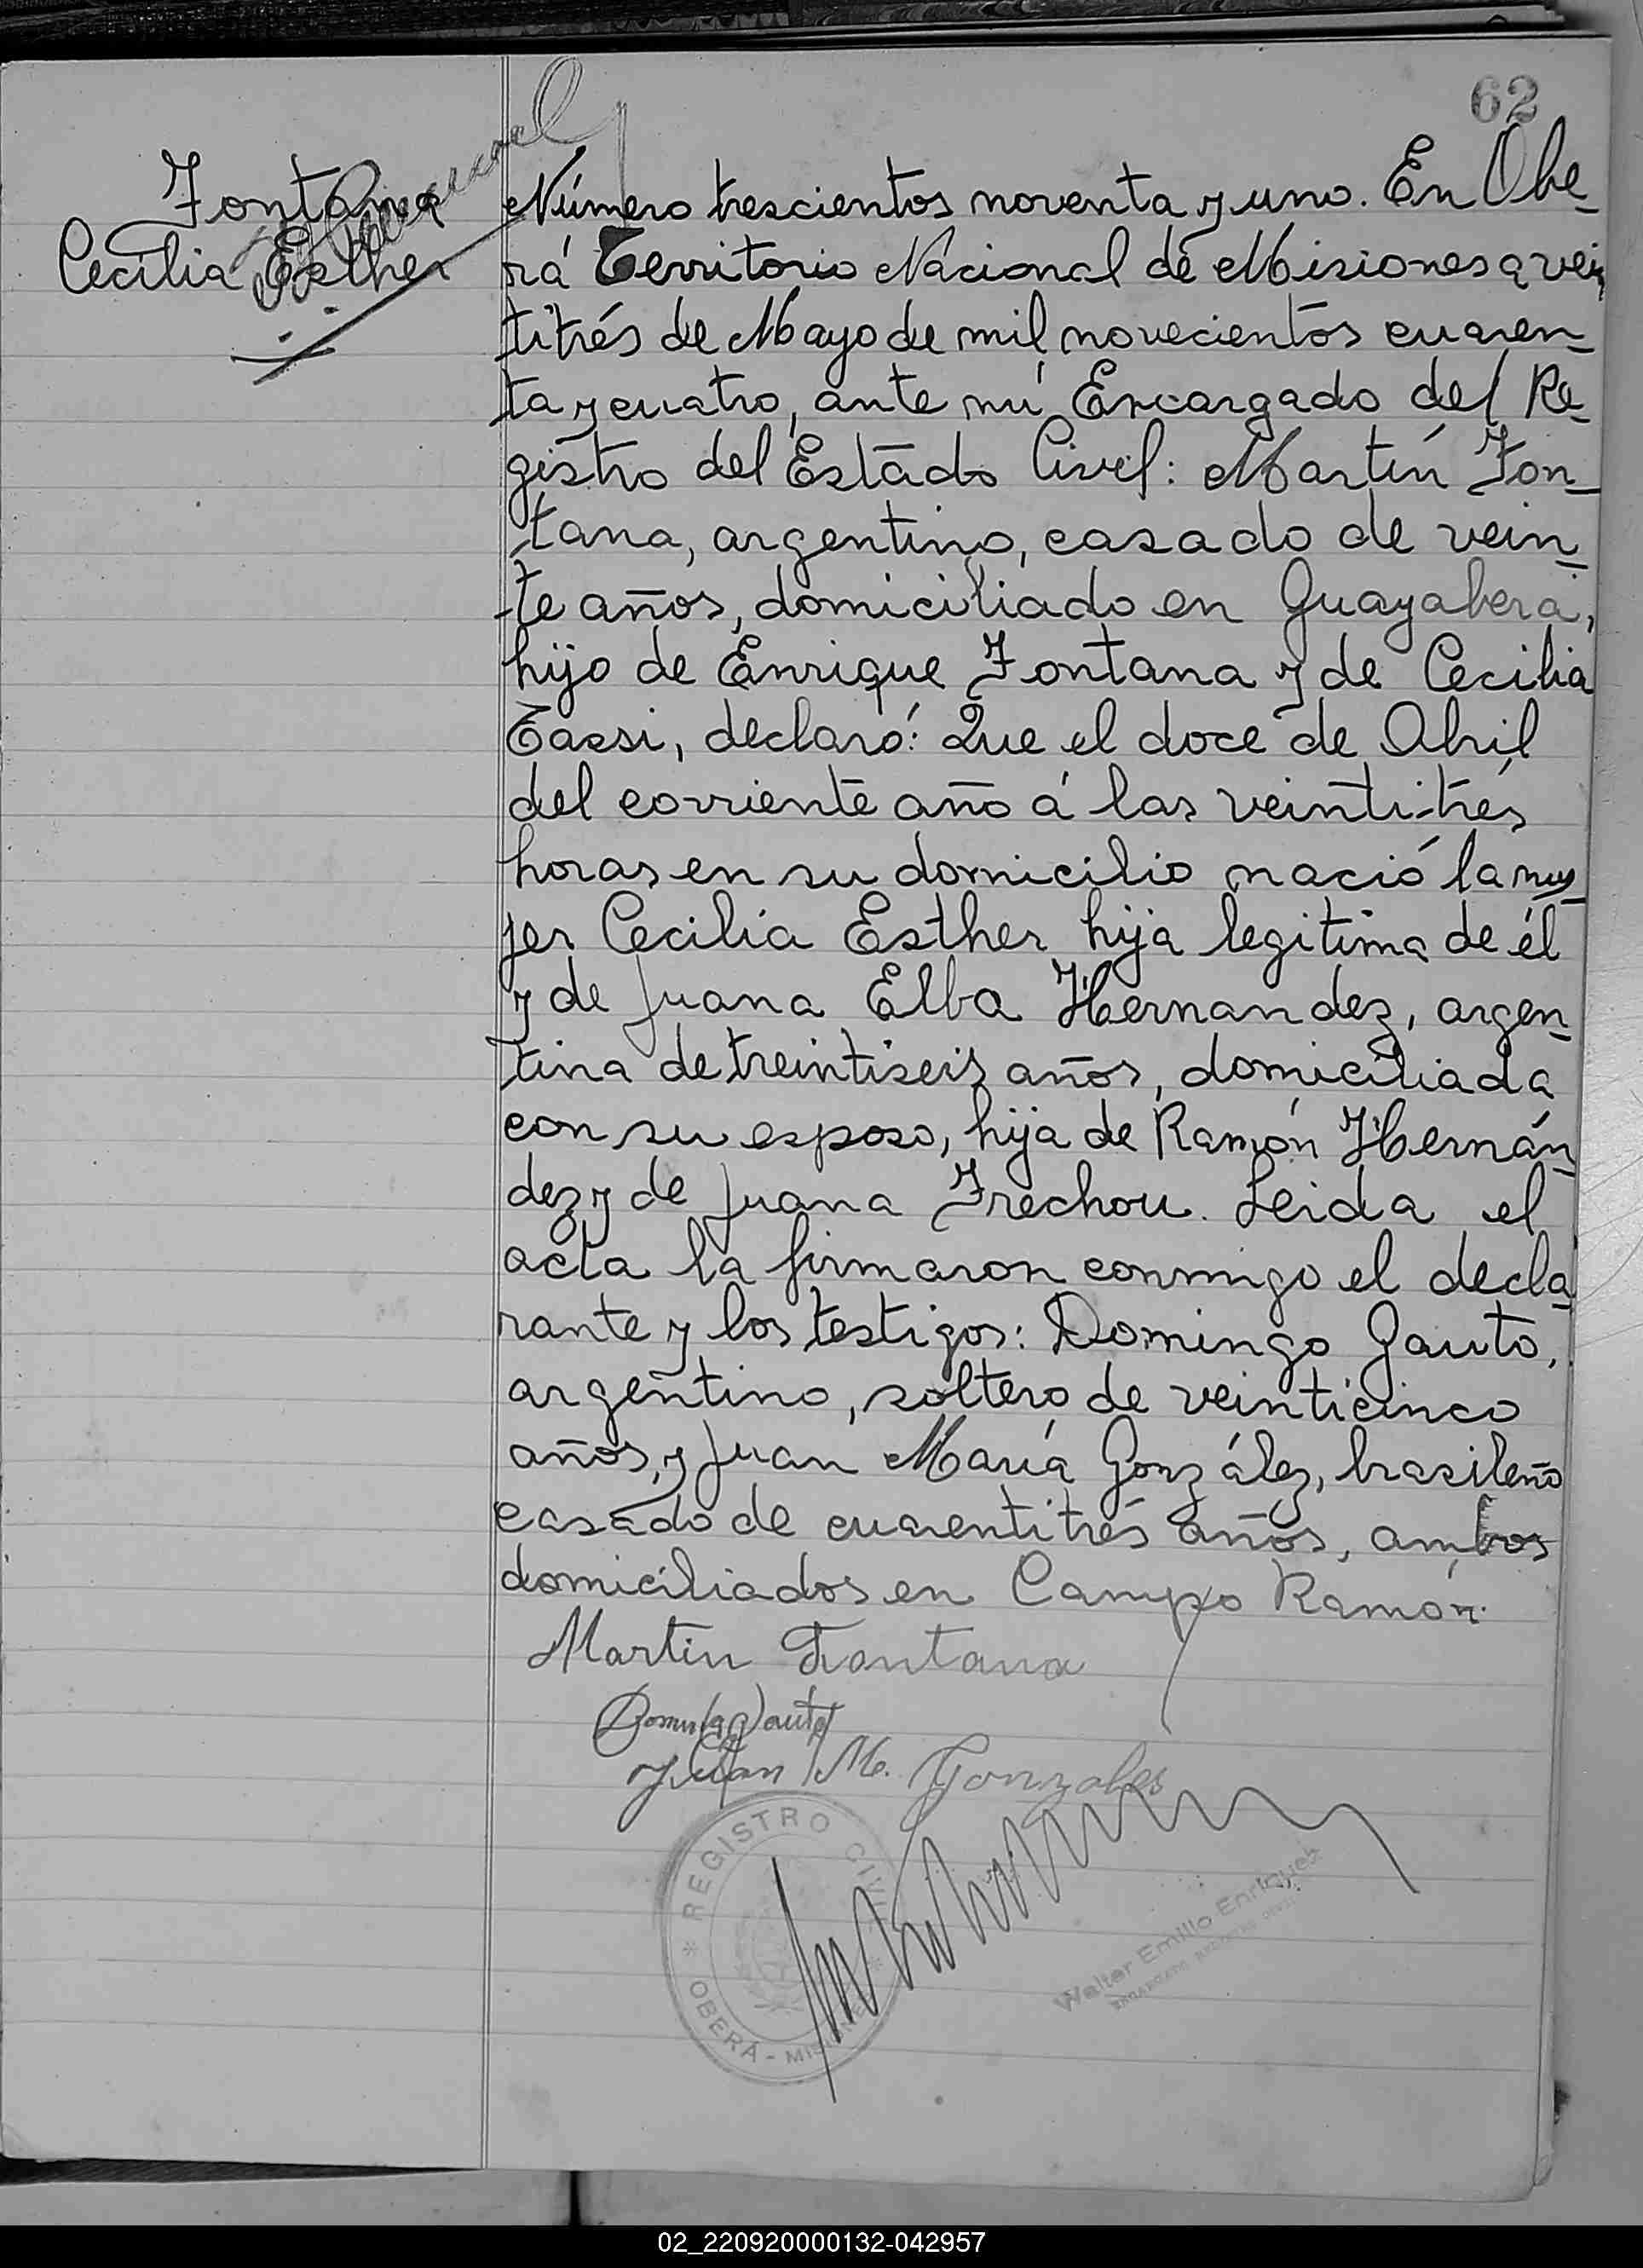 62
Fontana
Cecilia Esther
Número trescientos noventa y uno. En Obe-
rá Territorio Nacional de Misiones a vein
titrés de Mayo de mil novecientos cuaren-
ta y cuatro, ante mí Encargado del Re-
gistro del Estado Civil: Martín Fon-
tana, argentino, casado de vein-
te años, domiciliado en Guayabera,
hijo de Enrique Fontana y de Cecilia
Tassi, declaró: Que el doce de Abril
del corriente año á las veintitrés
horas en su domicilio nació la mu-
jer Cecilia Esther hija legitima de él
y de Juana Elba Hernandez, argen-
tina de treintiseis años, domiciliada
con su esposo, hija de Ramón Hernán-
dez y de Juana Frechou. Leida el
acta la firmaron conmigo el decla-
rante y los testigos: Domingo Gauto,
argentino, soltero de veinticinco
años, y Juan María González, brasileño
casado de cuarentitrés años, ambos
domiciliados en Campo Ramón.
Martin Fontana
Domingo Gauto
Juan M. Gonzales
REGISTRO CIVIL
OBERÁ - MISIONES
Walter Emilio Enriquez
02_220920000132-042957